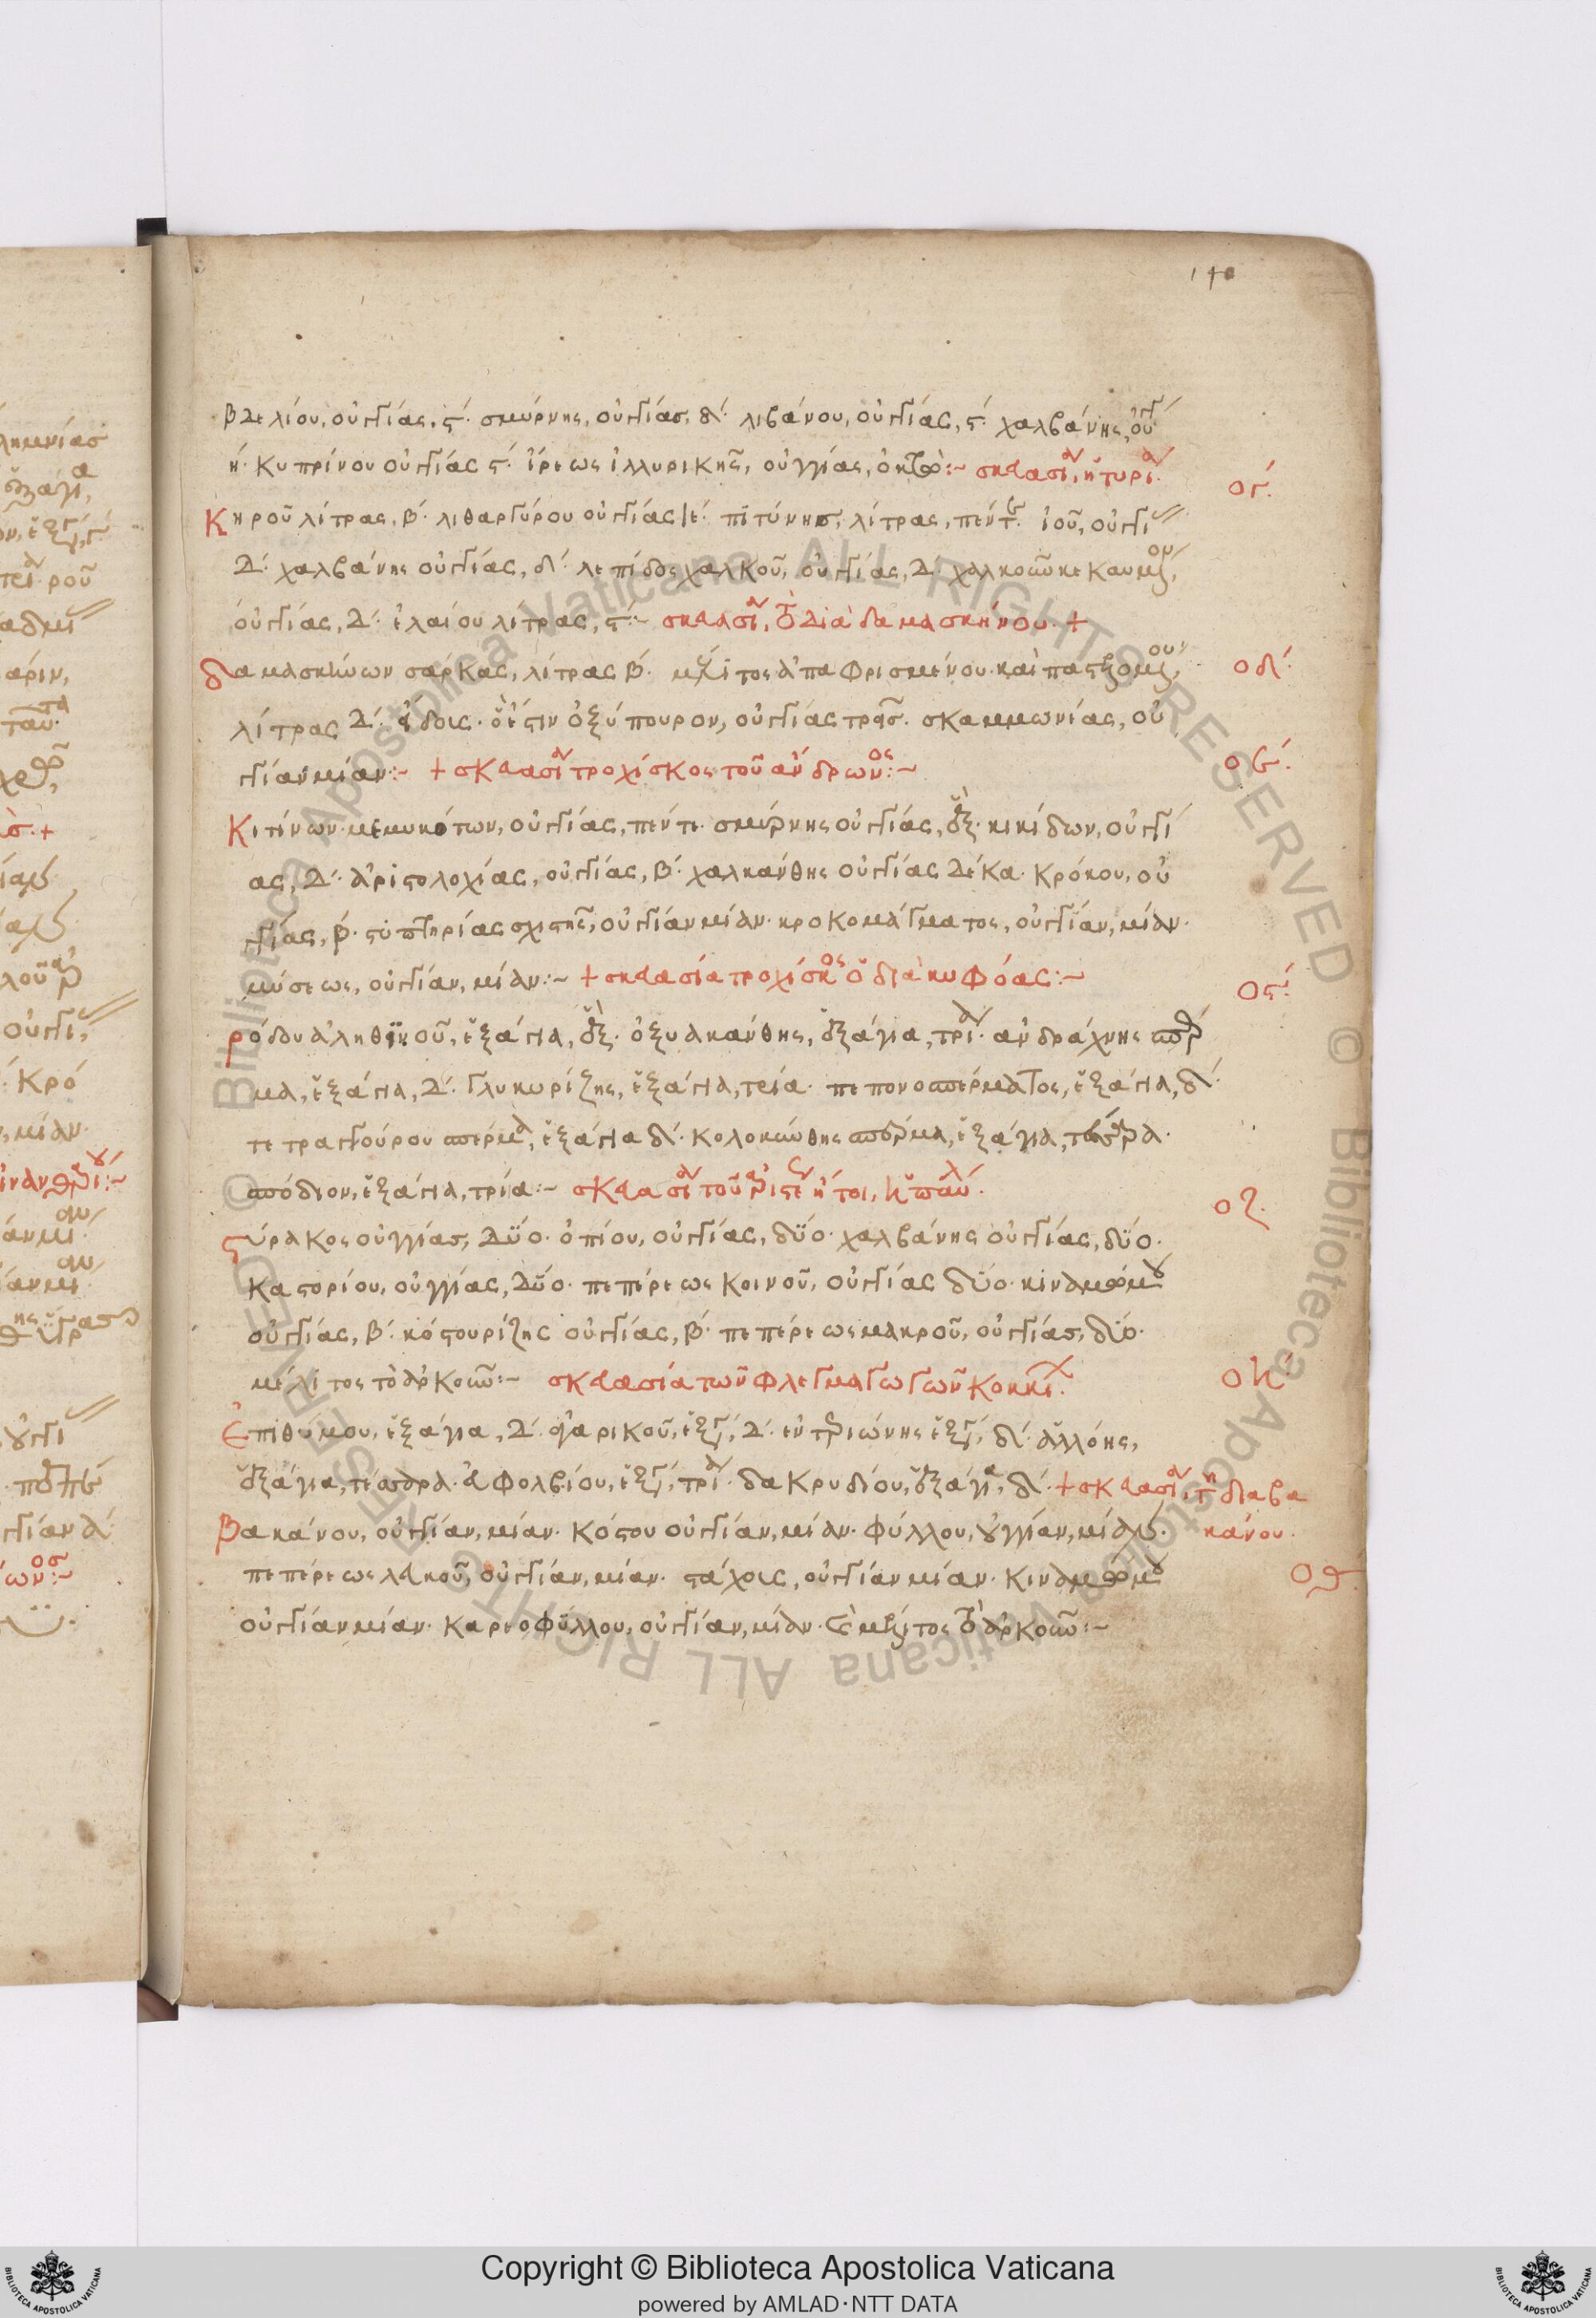 βδελίου, οὐγγίας, ϛ΄. σμύρνης, οὐγγίας, δ΄. λιβάνου, οὐγγίας, ϛ΄. χαλβάνης, οὐγγί
η΄. κυπρίνου οὐγγίας ϛ΄. ἴρεως ἰλλυρικῆς, οὐγγίας, ὀκτώ:~ σκευασία, ἡ τυρία.
ογ΄.
Κηροῦ λίτρας, β΄. λιθαργύρου οὐγγίας ιε΄. πιτύνης, λίτρας, πέντε. ἰοῦ, οὐγγί
δ΄. χαλβάνης οὐγγίας, δ΄. λεπίδος χαλκοῦ, οὐγγίας, δ΄. χαλκοῦ κεκαυμένου,
οὐγγίας, δ΄. ἐλαίου λίτρας, ϛ΄:~ σκευασία, τὸ διὰ δαμασκήνου. +
δαμασκήνων σάρκας, λίτρας β΄. μέλιτος ἀπαφρισμένου. καὶ
οδ΄.
λίτρας δ΄. εἴδοις. ὅ ἐστιν ὀξύπουρον, οὐγγίας τρεῖς. σκαμμωνίας, οὐ
γγίαν μίαν:~ + σκευασία τροχίσκος τοῦ ἀνδρωνος:~
οε΄.
Κιτίνων μεμυκότων, οὐγγίας, πέντε. σμύρνης οὐγγίας, ἓξ. κικίδων, οὐγγί
ας, δ΄. ἀριστολοχίας, οὐγγίας, β΄. χαλκάνθης οὐγγίας δέκα. κρόκου, οὐ
γγίας, β΄. στυπτηρίας σχιστῆς, οὐγγίαν μίαν. κροκομάγματος, οὐγγίαν, μίαν.
μύσεως, οὐγγίαν, μίαν:~ + σκευασία τροχίσκος ὁ διὰ κυφόας:~
οϛ΄.
ῥόδου ἀληθινοῦ, ἐξάγια, ἓξ. ὀξυακάνθης, ἐξάγια, τρία. ἀνδράχνης σπέρ
μα, ἐξάγια, δ΄. γλυκωρίζης, ἐξάγια, τρία. πεπονοσπέρματος, ἐξάγια, δ΄.
τετραγγούρου σπέρμα, ἐξάγια δ΄. κολοκύνθης σπέρμα, ἐξάγια, τέσσαρα.
σπόδιον, ἐξάγια, τρία:~ σκευασία τοῦ
οζ΄.
στύρακος οὐγγίας, δύο. ὀπίου, οὐγγίας, δύο. χαλβάνης οὐγγίας, δύο.
καστορίου, οὐγγίας, δύο. πεπέρεως κοινοῦ, οὐγγίας δύο. κιναμώμου
οὐγγίας, β΄. κόστου ρίζης οὐγγίας, β΄. πεπέρεως μακροῦ, οὐγγίας, δύο.
μέλιτος τὸ ἀρκοῦν:~ σκευασία τῶν φλεγμαγωγῶν κοκκί.
οη΄
Ἐπιθύμου, ἐξάγια, δ΄. ἀγαρικοῦ, ἐξάγια, δ΄. ἐντεριώνης ἐξάγια, δ΄. ἀλλόης,
ἐξάγια, τέσσαρα. ἀφολβίου, ἐξάγια, τρία. δακρυδίου, ἐξάγια, δ΄. + σκευασία, τῆς διαβα
Βακάνου, οὐγγίαν, μίαν. κόστου οὐγγίαν, μίαν. φύλλου, οὐγγίαν, μίαν. κάνου.
πεπέρεως λευκοῦ, οὐγγίαν, μίαν. στάχοις, οὐγγίαν μίαν. κιναμώμου
οθ΄.
οὐγγίαν μίαν. καρεοφύλλου, οὐγγίαν, μίαν. καὶ μέλιτος τὸ ἀρκοῦν:~
Copyright © Biblioteca Apostolica Vaticana
powered by AMLAD·NTT DATA